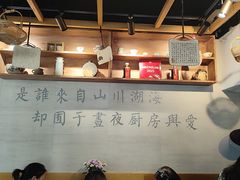 是誰來自山川湖海
却囿于晝夜厨房與愛